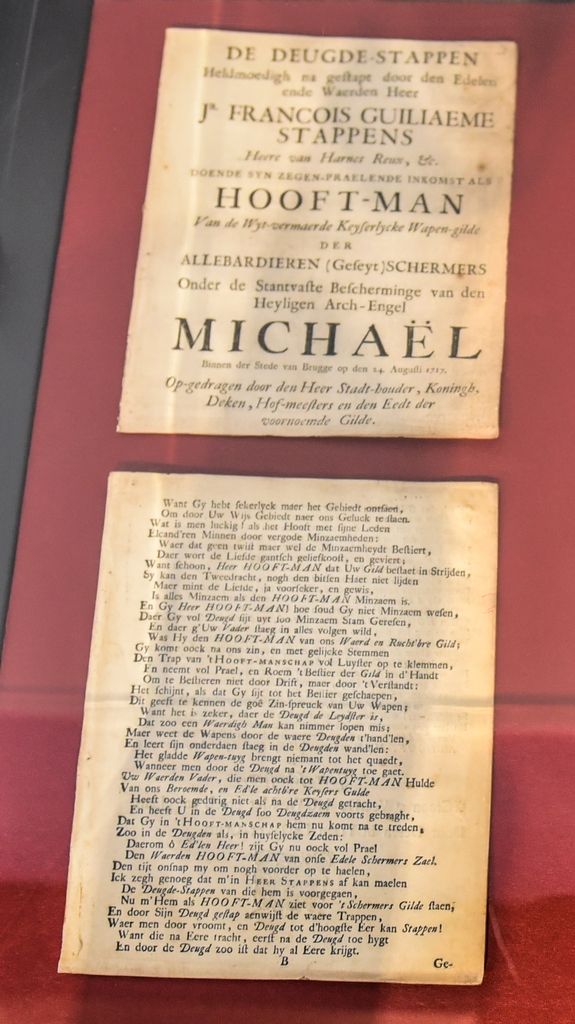 DE DEUGDE-STAPPEN
Heldmoedigh na gestapt door den Edelen
ende Waerden Heer
Jr. FRANCOIS GUILIAEME
STAPPENS
Heere van Harnes Reux, &c.
DOENDE SYN ZEGEN-PRAELENDE INKOMST ALS
HOOFT-MAN
Van de Wyt-vermaerde Keyſerlycke Wapen-gilde
DER
ALLEBARDIEREN (Geſeyt) SCHERMERS
Onder de Stantvaſte Beſcherminge van den
Heyligen Arch-Engel
MICHAËL
Binnen der Stede van Brugge op den 24. Auguſti 1717.
Op-gedragen door den Heer Stadt-houder, Koningh,
Deken, Hof-meeſters en den Eedt der
voornoemde Gilde.
Want Gy hebt ſekerlyck maer het Gebiedt ontfaen,
Om door Uw Wijs Gebiedt naer ons Geluck te ſtaen.
Wat is men luckig! als het Hooft met ſijne Leden
Elcand'ren Minnen door vergode Minzaemheden:
Waer dat geen twiſt maer wel de Minzaemheydt Beſtiert,
Daer wort de Liefde gantſch geliefkooſt, en geviert;
Want ſchoon, Heer HOOFT-MAN dat Uw Gild beſtaet in Strijden,
Sy kan den Tweedracht, nogh den bitſen Haet niet lijden
Maer mint de Liefde, ja voorſeker, en gewis,
Is alles Minzaem als den HOOFT-MAN Minzaem is.
En Gy Heer HOOFT-MAN! hoe ſoud Gy niet Minzaem weſen,
Daer Gy vol Deugd ſijt uyt ſoo Minzaem Stam Gereſen,
En daer g'Uw Vader ſtaeg in alles volgen wild,
Was Hy den HOOFT-MAN van ons Waerd en Rucht'bre Gild;
Gy komt oock na ons zin, en met gelijcke Stemmen
Den Trap van 't HOOFT-MANSCHAP vol Luyſter op te klemmen,
En neemt vol Prael, en Roem 't Beſtier der Gild in d'Handt
Om te Beſtieren niet door Drift, maer door 't Verſtandt:
Het ſchijnt, als dat Gy ſijt tot het Beſtier geſchaepen,
Dit geeft te kennen de goê Zin-ſpreuck van Uw Wapen;
Want het is zeker, daer de Deugd de Leydſter is,
Dat zoo een Waerdigh Man kan nimmer lopen mis;
Maer weet de Wapens door de waere Deugden t'hand'len,
En leert ſijn onderdaen ſtaeg in de Deugden wand'len:
Het gladde Wapen-tuyg brengt niemant tot het quaedt,
Wanneer men door de Deugd na 't Wapentuyg toe gaet.
Uw Waerden Vader, die men oock tot HOOFT-MAN Hulde
Van ons Beroemde, en Ed'le achtb're Keyſers Gulde
Heeft oock gedurig niet als na de Deugd getracht,
En heeft U in de Deugd ſoo Deugdzaem voorts gebraght,
Dat Gy in 't HOOFT-MANSCHAP hem nu komt na te treden,
Zoo in de Deugden als, in huyſelycke Zeden:
Daerom ô Ed'len Heer! zijt Gy nu oock vol Prael
Den Waerden HOOFT-MAN van onſe Edele Schermers Zael.
Den tijt ontſnap my om nogh voorder op te haelen,
Ick zegh genoeg dat m'in HEER STAPPENS af kan maelen
De Deugde-Stappen van die hem is voorgegaen,
Nu m'Hem als HOOFT-MAN ziet voor 't Schermers Gilde ſtaen;
En door Sijn Deugd geſtap aenwijſt de waere Trappen,
Waer men door vroomt, en Deugd tot d'hoogſte Eer kan Stappen!
Want die na Eere tracht, eerſt na de Deugd toe hygt
En door de Deugd zoo iſt dat hy al Eere krijgt.
B
Ge-